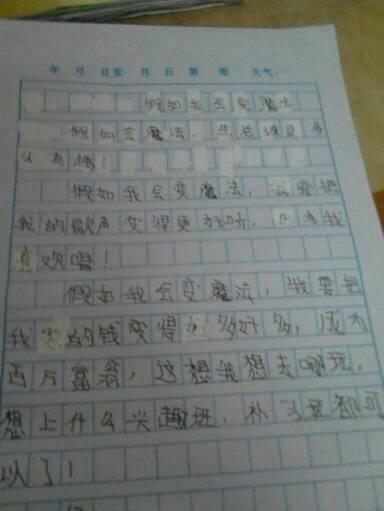 年 月 日至 月 日 第 周 天气：
假如我会变魔法
假如会魔法，生活该是多
么有趣！
假如我会变魔法，我要把
我的歌声变得更好听，因为我
喜欢唱！
假如我会变魔法，我要把
我家的钱变得好多好多，成为
百万富翁，这想我想去哪玩，
想上什么兴趣班、补习班都可
以了！